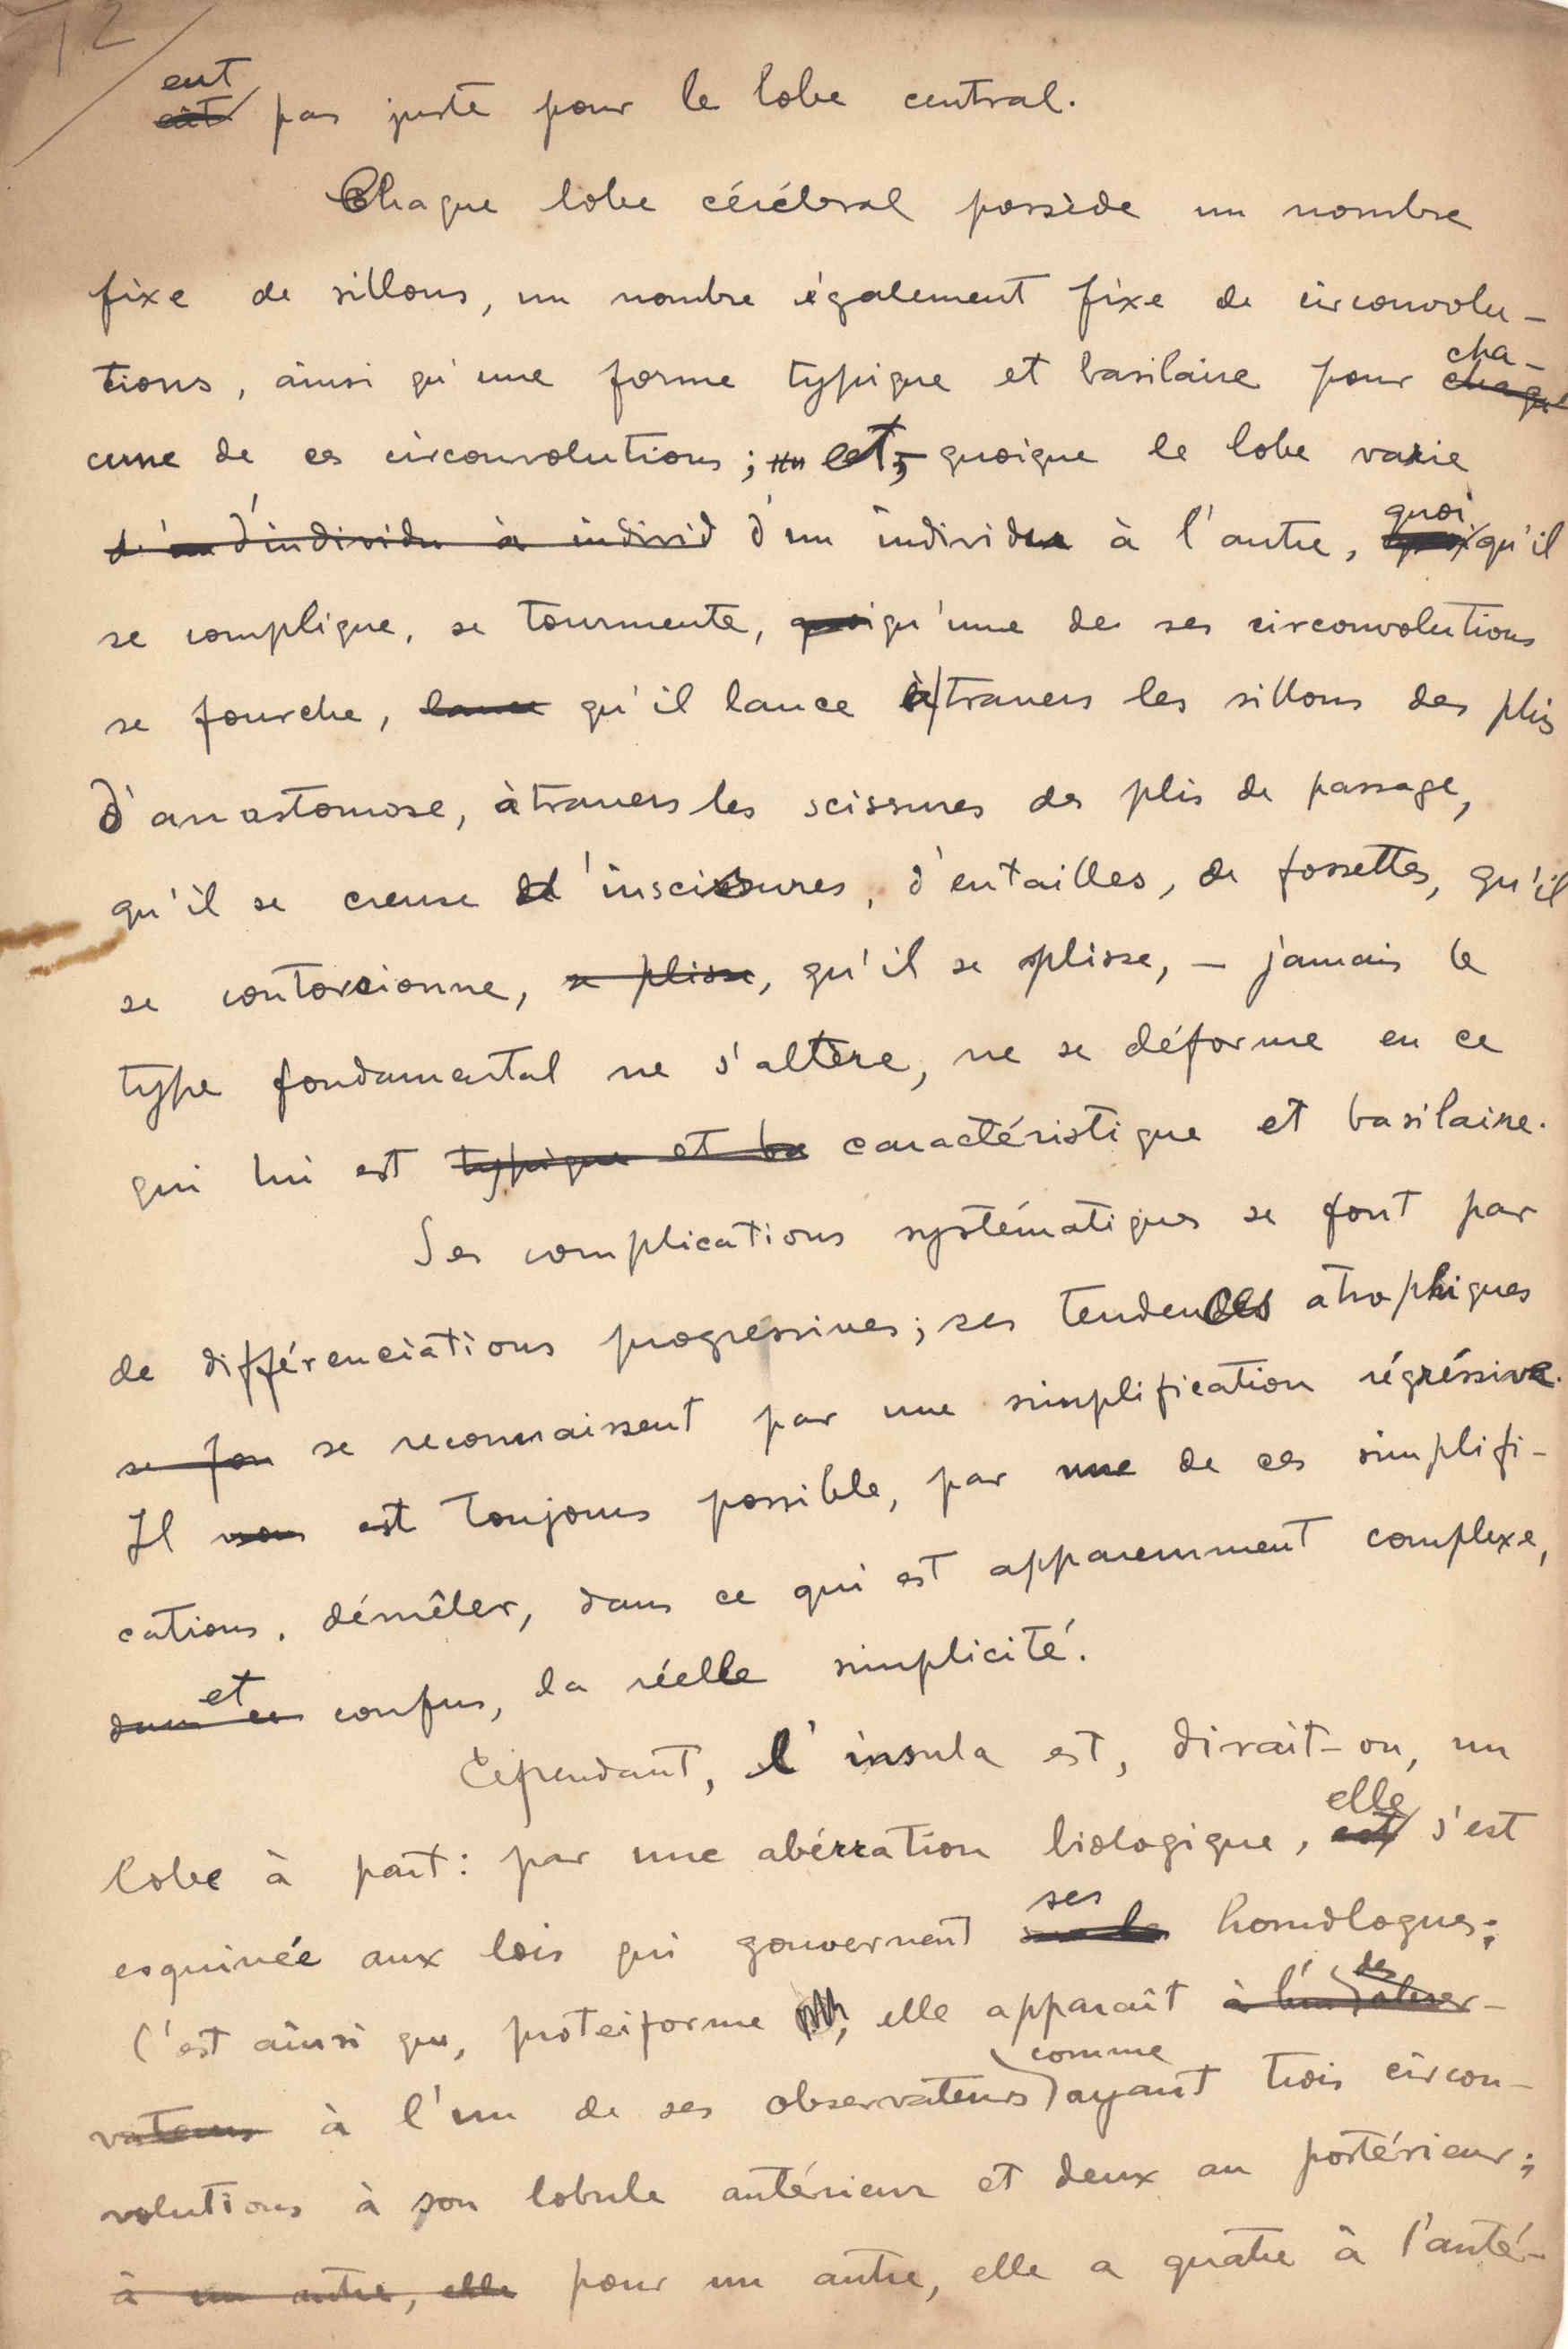 12
eut
pas juste pour le lobe central.
Chaque lobe cérébral possède un nombre
fixe de sillons, un nombre également fixe de circonvolu-
tions, ainsi qu'une forme typique et basilaire pour cha-
cune de ces circonvolutions ; et, quoique le lobe varie
d'individu à individ d'un individu à l'autre, quoi qu'il
se complique, se tourmente, quoiqu'une de ses circonvolutions
se fourche, lance qu'il lance à travers les sillons des plis
d'anastomose, à travers les scissures des plis de passage,
qu'il se creuse d'inscissures, d'entailles, de fossettes, qu'il
se contorsionne, se plisse, qu'il se plisse, – jamais le
type fondamental ne s'altère, ne se déforme en ce
qui lui est typique et ba caractéristique et basilaire.
Ses complications systématiques se font par
de différenciations progressives ; ses tendences atrophiques
se fon se reconnaissent par une simplification régréssive.
Il est toujours possible, par une de ces simplifi-
cations, démêler, dans ce qui est apparemment complexe,
dans ce et confus, la réelle simplicité.
Cependant, l'insula est, dirait-on, un
lobe à part : par une abérration biologique, est elle s'est
esquivée aux lois qui gouvernent ses homologues ;
C'est ainsi que, proteiforme, elle apparaît à l'un des obser-
vateurs à l'un de ses observateurs comme ayant trois circon-
volutions à son lobule antérieur et deux au postérieur ;
à un autre, elle pour un autre, elle a quatre à l'anté-